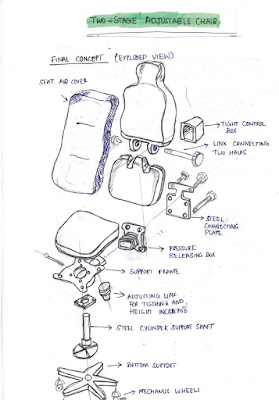 TWO-STAGE ADJUSTABLE CHAIR
FINAL CONCEPT (EXPLODED VIEW)
SEAT AIR COVER
TIGHT CONTROL
BOX
LINK CONNECTING
TWO HALFS
STEEL
CONNECTING
PLATE
PRESSURE
RELEASING BOX
SUPPORT FRAME
ADJUSTING LINK
FOR TIGHTING AND
HEIGHT INCREASE
STEEL CYLINDER SUPPORT SHAFT
BOTTOM SUPPORT
MECHANUS WHEELS